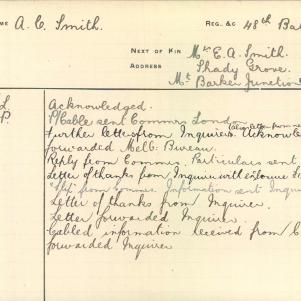 ME A. C. Smith. REG. &C 48th Bat
NEXT OF KIN Mr E. A. Smith.
ADDRESS Shady Grove.
Mt Barker Junction
L Acknowledged.
P. P/Cable sent Commrs London
further letter from Inquirer. Acknowle
forwarded Melb. Bureau.
Reply from Commrs. Particulars sent
Letter of thanks from Inquirer with enclosure
from Commrs. Information sent Inqui
Letter of thanks from Inquirer.
Letter forwarded Inquirer.
Cabled information received from
forwarded Inquirer